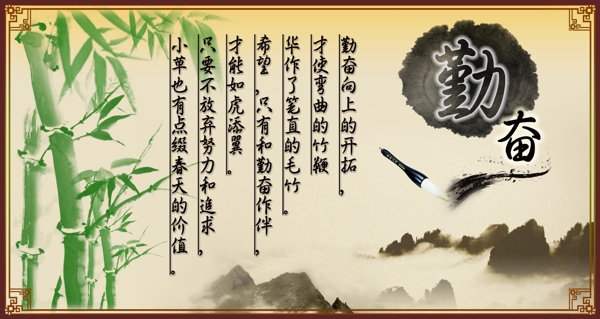 勤奋
勤奋向上的开拓，
才使弯曲的竹鞭
华作了笔直的毛竹。
希望，只有和勤奋作伴，
才能如虎添翼。
只要不放弃努力和追求，
小草也有点缀春天的价值。